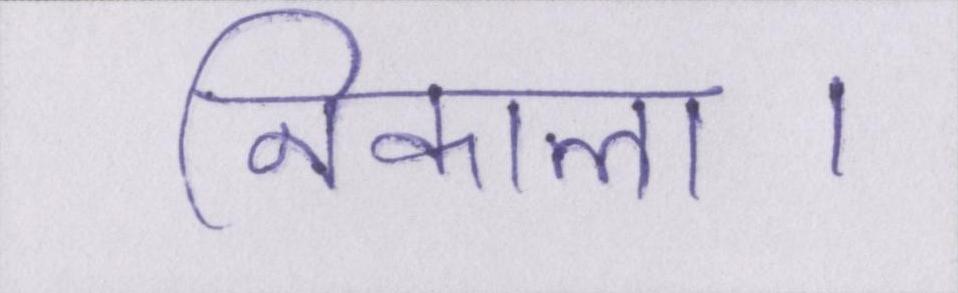 निकाला ।